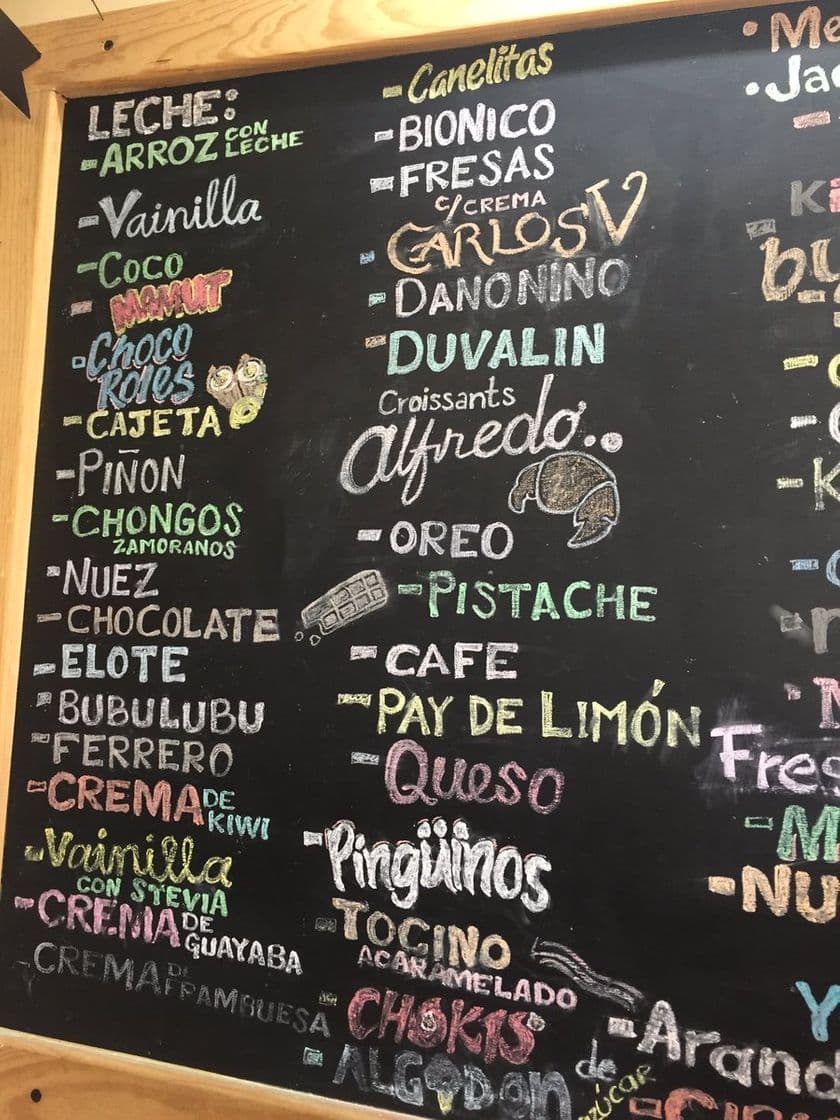 LECHE:
-ARROZ CON LECHE
-Vainilla
-COCO
- MAMUT
-CHOCO
ROLES
-CAJETA
-PIÑON
-CHONGOS
ZAMORANOS
-NUEZ
-CHOCOLATE
-ELOTE
-BUBULUBU
-FERRERO
-CREMA DE KIWI
-Vainilla
CON STEVIA
-CREMA DE GUAYABA
-CREMA DE FRAMBUESA
-Canelitas
-BIONICO
-FRESAS
C/CREMA
- CARLOS V
-DANONINO
-DUVALIN
Croissants
alfredo..
-OREO
-PISTACHE
-CAFE
-PAY DE LIMÓN
-QUESO
-Pingüinos
-TOCINO
ACARAMELADO
-CHOKIS
-ALGODON de
AZÚCAR
•Me
•Ja
-
Ki
- bu
-
-K
Fres
-M
-NU
Y
-Arand